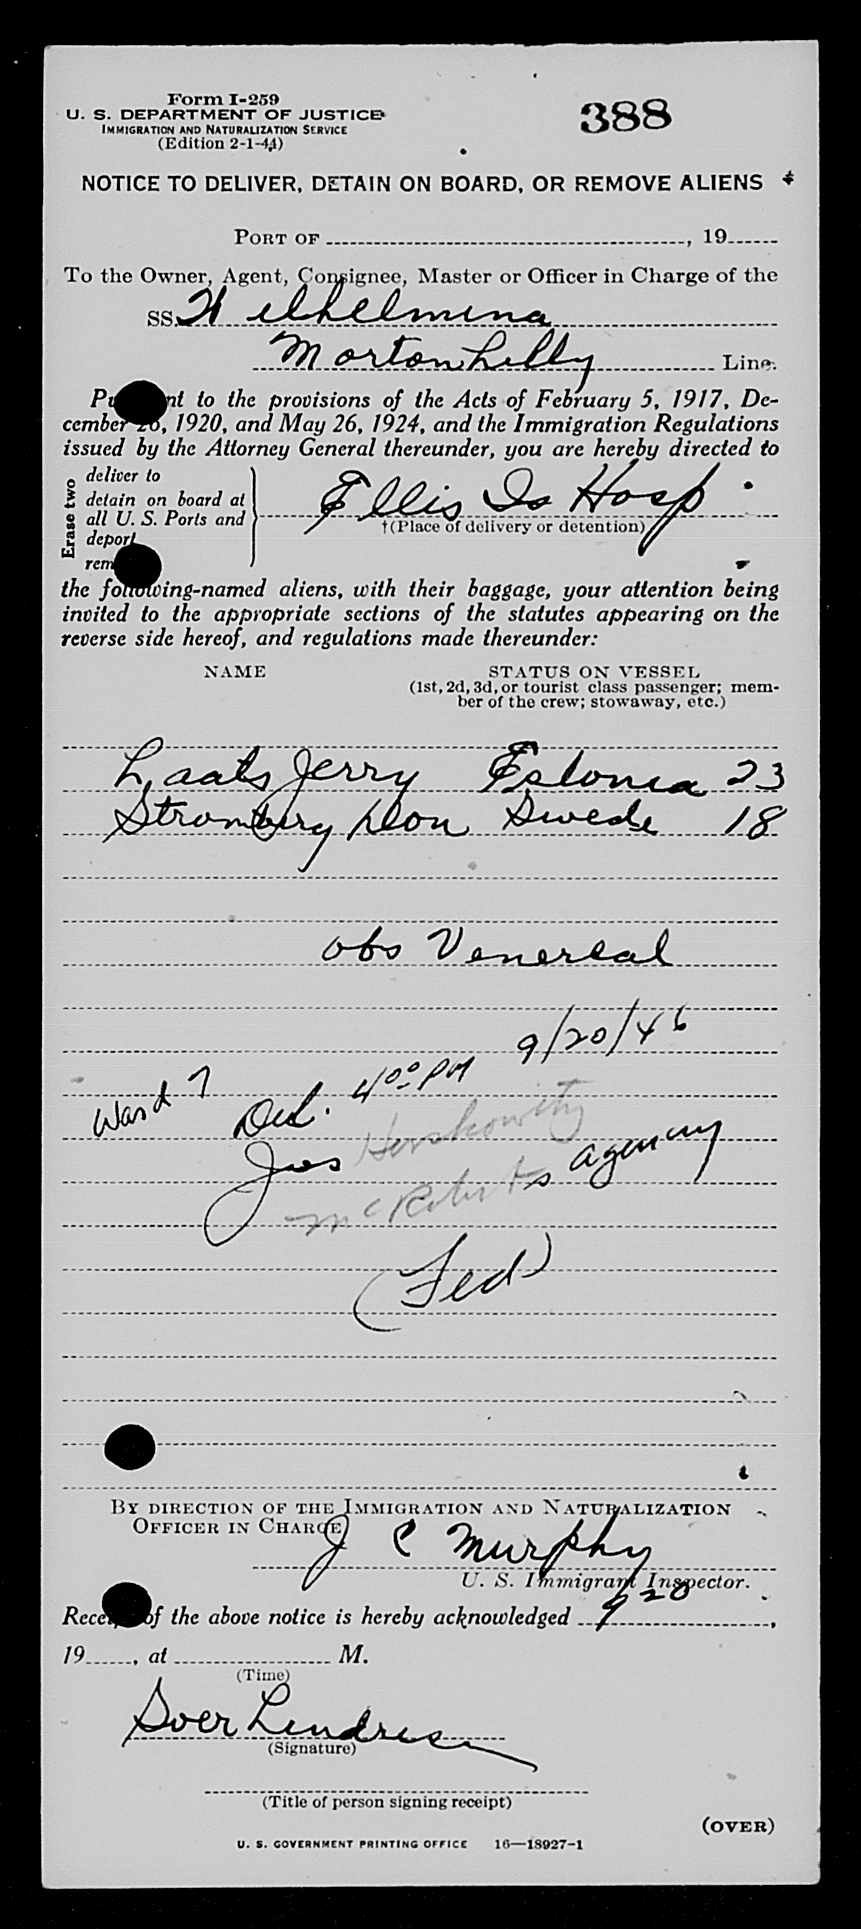 Form I-259
U. S. DEPARTMENT OF JUSTICE
IMMIGRATION AND NATURALIZATION SERVICE
(Edition 2-1-44)
388
NOTICE TO DELIVER, DETAIN ON BOARD, OR REMOVE ALIENS
PORT OF , 19
To the Owner, Agent, Consignee, Master or Officer in Charge of the
SS. Wilhelmina
Morton Lilly Line.
nt to the provisions of the Acts of February 5, 1917, De-
cember 26, 1920, and May 26, 1924, and the Immigration Regulations
issued by the Attorney General thereunder, you are hereby directed to
Erase two
deliver to
detain on board at
all U. S. Ports and
deport
rem
Ellis Is Hosp
†(Place of delivery or detention)
the following-named aliens, with their baggage, your attention being
invited to the appropriate sections of the statutes appearing on the
reverse side hereof, and regulations made thereunder:
NAME STATUS ON VESSEL
(1st, 2d, 3d, or tourist class passenger; mem-
ber of the crew; stowaway, etc.)
Laats Jerry Estonia 23
Stromberg Swede 18
obs Venereal
9/20/46
Ward 7 Del. 4 00 PM
Hershowitz
McRoberts agency
(Fed)
BY DIRECTION OF THE IMMIGRATION AND NATURALIZATION
OFFICER IN CHARGE
J C Murphy
U. S. Immigrant Inspector.
Rece of the above notice is hereby acknowledged 9 20 ,
19 , at M.
(Time)
(Signature)
(Title of person signing receipt)
(OVER)
U. S. GOVERNMENT PRINTING OFFICE 16—18927-1